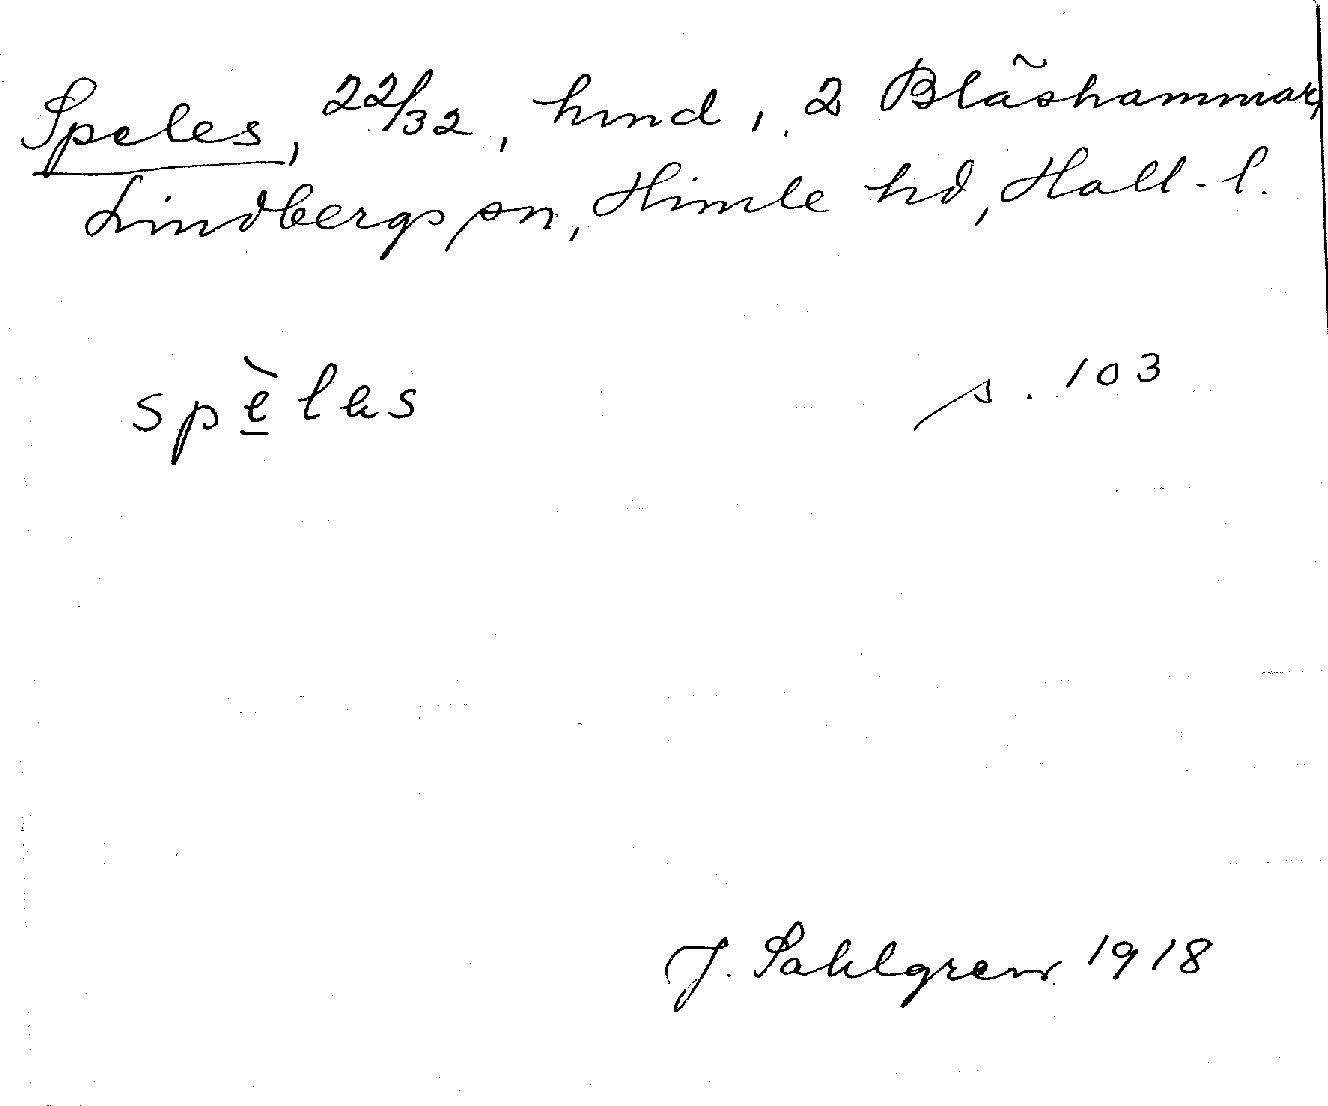 Speles, 22/32, hmd, 2 Blåshammar,
Lindbergs sn, Himle hd, Hall. l.
spè̱lɐs s. 103
J. Sahlgren 1918